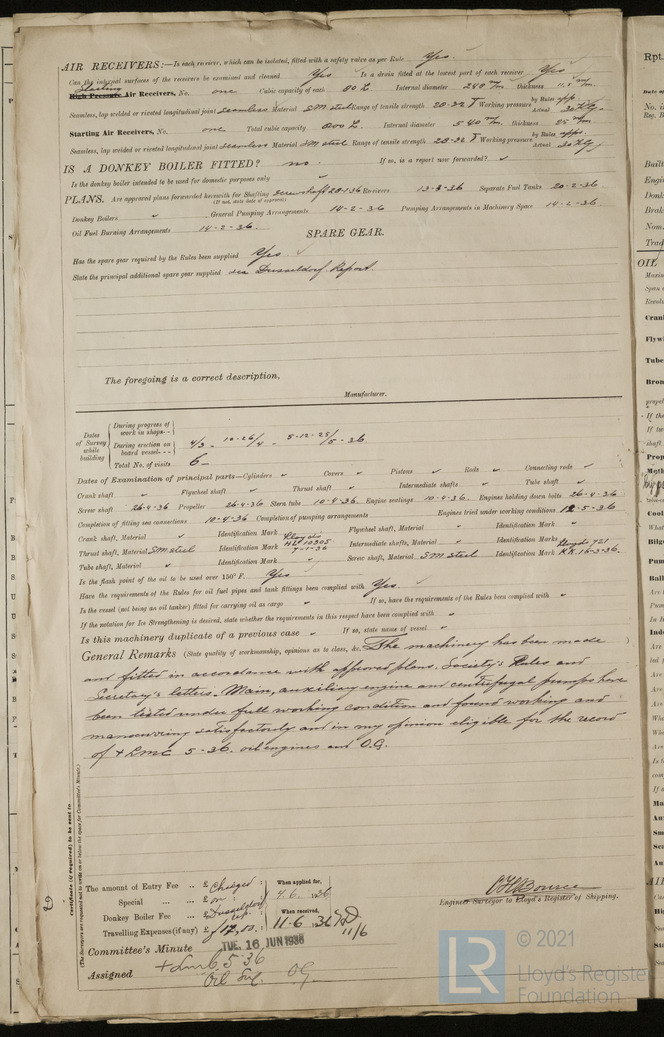 AIR RECEIVERS:—Is each receiver, which can be isolated, fitted with a safety valve as per Rule Yes.
Can the internal surfaces of the receivers be examined and cleaned Yes Is a drain fitted at the lowest part of each receiver Yes
Starting
High Pressure Air Receivers, No. one Cubic capacity of each 80 L. Internal diameter 240 m/m. thickness m/m.
Seamless, lap welded or riveted longitudinal joint seamless Material SM steel Range of tensile strength 28-32 T Working pressure by Rules app.
Actual 30 Kg.
Starting Air Receivers, No. one Total cubic capacity 800 L. Internal diameter 540 m/m. thickness 25 m/m
Seamless, lap welded or riveted longitudinal joint seamless Material SM steel Range of tensile strength 28-32 T Working pressure by Rules app.
Actual 30 Kg
IS A DONKEY BOILER FITTED? no. If so, is a report now forwarded?
Is the donkey boiler intended to be used for domestic purposes only
PLANS. Are approved plans forwarded herewith for Shafting screwshaft 28-1-36 Receivers 13-3-36 Separate Fuel Tanks 20-2-36
(If not, state date of approval)
Donkey Boilers General Pumping Arrangements 14-2-36 Pumping Arrangements in Machinery Space 14-2-36.
Oil Fuel Burning Arrangements 14-2-36.
SPARE GEAR.
Has the spare gear required by the Rules been supplied Yes.
State the principal additional spare gear supplied see Dusseldorf Report.
The foregoing is a correct description,
Manufacturer.
Dates of Survey while building
During progress of work in shops--
During erection on board vessel--- 4/3 - 10-26/4 - 5-12-25/5-36.
Total No. of visits 6—
Dates of Examination of principal parts—Cylinders Covers Pistons Rods Connecting rods
Crank shaft Flywheel shaft Thrust shaft Intermediate shafts Tube shaft
Screw shaft 26-4-36 Propeller 26-4-36 Stern tube 10-4-36. Engine seatings 10-4-36. Engines holding down bolts 26-4-36
Completion of fitting sea connections 10-4-36 Completion of pumping arrangements Engines tried under working conditions 12-5-36
Crank shaft, Material Identification Mark Flywheel shaft, Material Identification Mark
Thrust shaft, Material SM steel Identification Mark Lloyds 10305 7-1-36 Intermediate shafts, Material Identification Marks
Tube shaft, Material Identification Mark Screw shaft, Material SM steel Identification Mark Lloyds 721 K.R. 16-3-36.
Is the flash point of the oil to be used over 150° F. Yes
Have the requirements of the Rules for oil fuel pipes and tank fittings been complied with Yes.
Is the vessel (not being an oil tanker) fitted for carrying oil as cargo If so, have the requirements of the Rules been complied with
If the notation for Ice Strengthening is desired, state whether the requirements in this respect have been complied with
Is this machinery duplicate of a previous case If so, state name of vessel
General Remarks (State quality of workmanship, opinions as to class, &c. The machinery has been made
and fitted in accordance with approved plans, Society's Rules and
Secretary's letters. Main, auxiliary engine and centrifugal pumps have
been tested under full working condition and found working and
manoeuvring satisfactorily and in my opinion eligible for the record
of + LMC 5-36. oil engines and O.G.
Certificate (if required) to be sent to
(The Surveyors are requested not to write on or below the space for Committee's Minute.)
The amount of Entry Fee .. £ Charged
Special ... £ in
Donkey Boiler Fee ... £ Dusseldorf
Travelling Expenses (if any) £
When applied for, 4.6.1936
When received, 11.6.1936
11/6
Engineer Surveyor to Lloyd's Register of Shipping.
Committee's Minute TUE. 16 JUN 1936
Assigned + LMC 5.36
Oil Eng. OG.
© 2021
Lloyd's Register
Foundation
LR
Rpt.
OIL